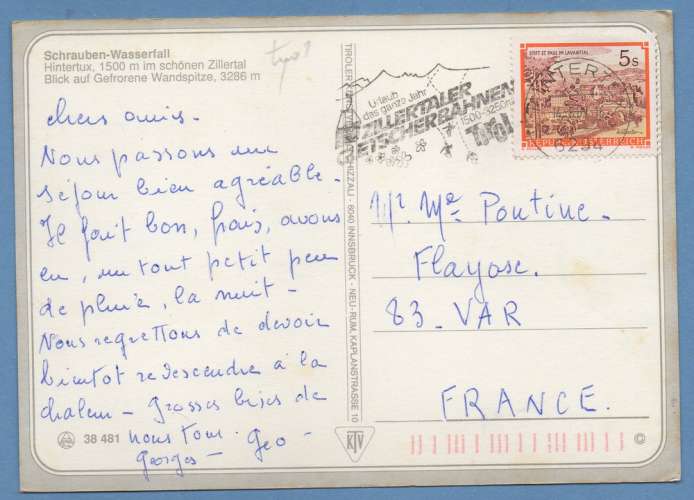 Schrauben-Wasserfall
Hintertux, 1500 m im schönen Zillertal
Blick auf Gefrorene Wandspitze, 3286 m
chers amis.
Nous passons un
séjour bien agréable.
Il fait bon, frais, avons
eu, un tout petit peu
de pluie, la nuit -
Nous regrettons de devoir
bientot redescendre à la
chaleur - Grosses bises de
nous tous. Geo -
Georges -
38 481
TIROLER
CHIZZALI - 6040 INNSBRUCK - NEU-RUM, KAPLANSTRASSE 10
KTV
Urlaub
das ganze Jahr
ZILLERTALER
GLETSCHERBAHNEN
1500-3250m
Tirol
STIFT ST. PAUL IM LAVANTTAL
5s
REPUBLIK ÖSTERREICH
6294
Mr. Me Pontine -
Flayosc.
83. VAR
FRANCE.
©